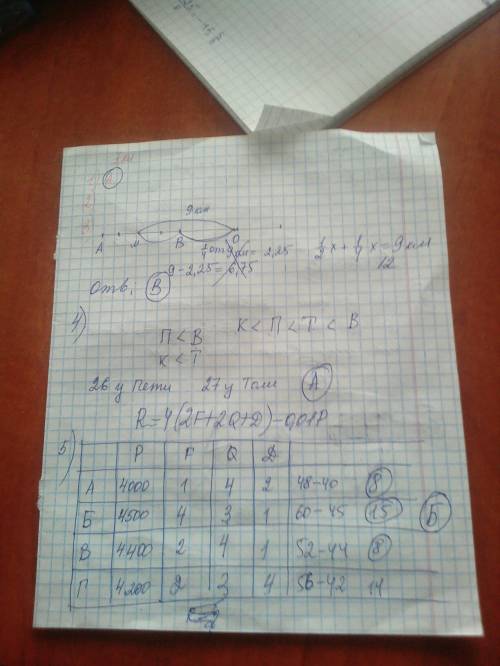 9 км
А М В О
1/4 от 9 км = 2,25 1/2 x + 1/4 x = 9 км
9 - 2,25 = 6,75 12
отв. В
4)
П < В К < П < Т < В
К < Т
26 у Пети 27 у Толи А
R = 4(2F + 2Q + D) - 0,01P
5)
P F Q D
А 4000 1 4 2 48-40 8
Б 4500 4 3 1 60-45 15 Б
В 4400 2 4 1 52-44 8
Г 4200 2 3 4 56-42 14